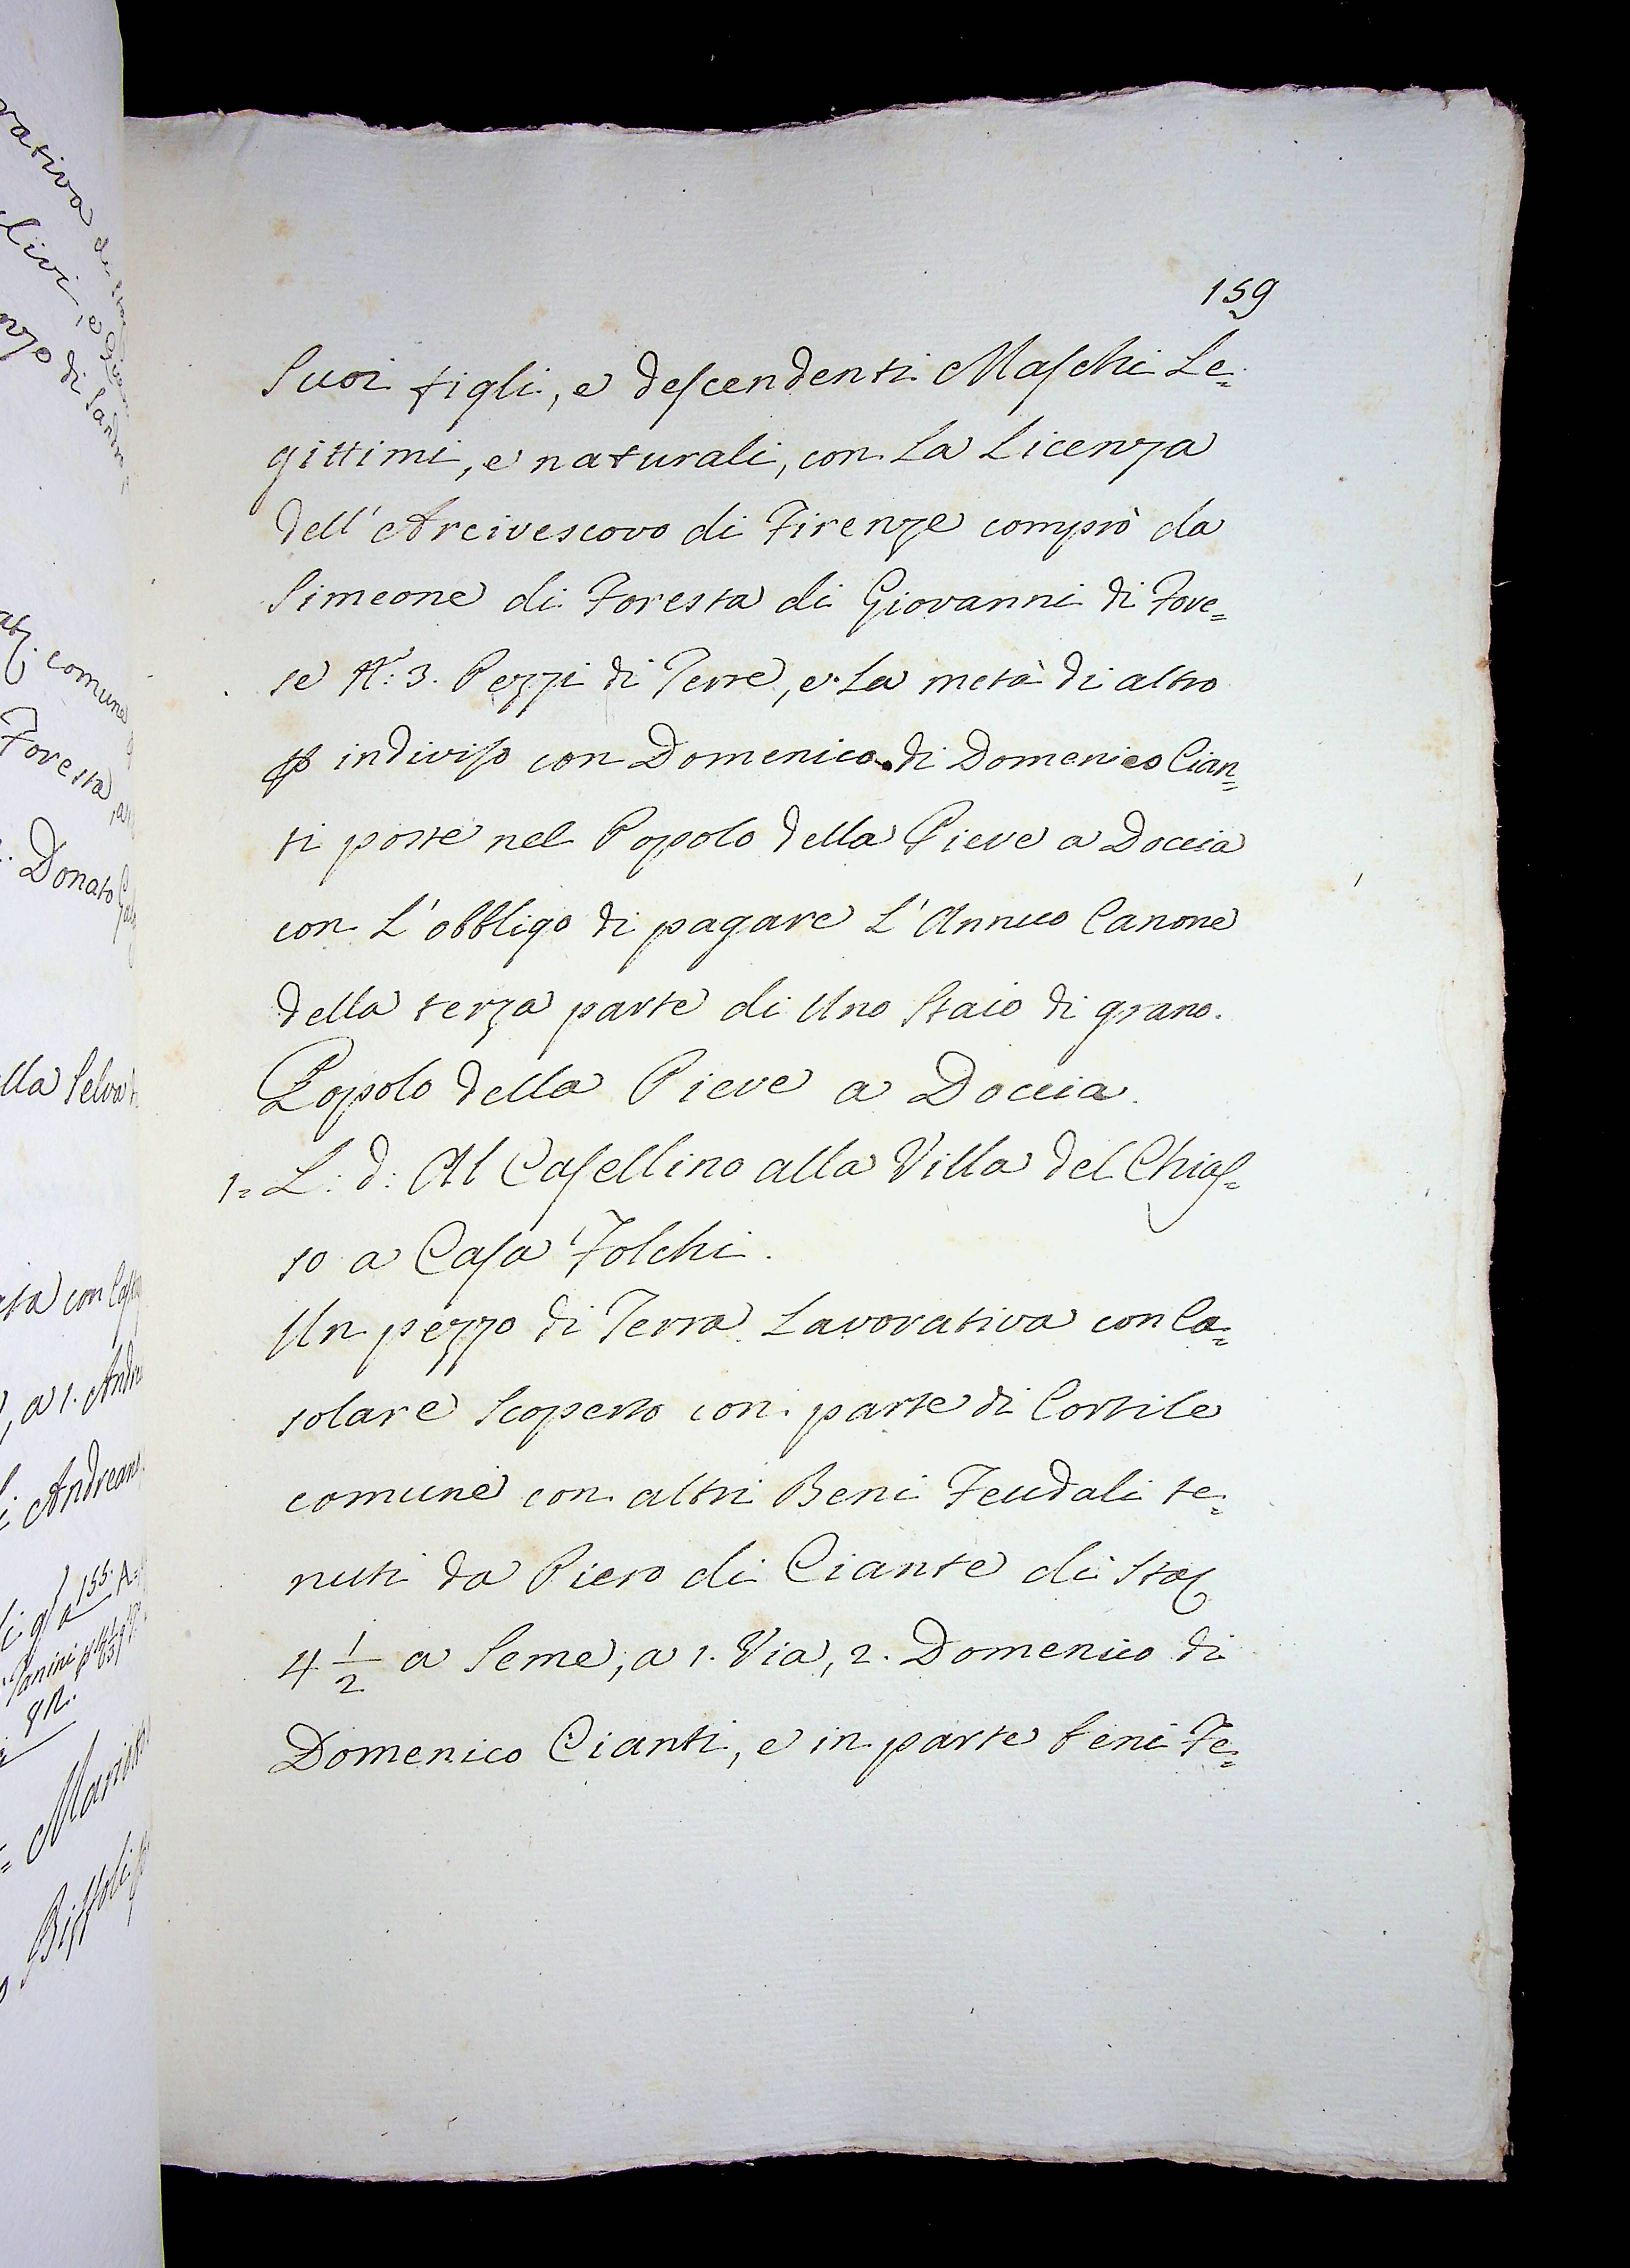 159
Suoi figli, e descendenti Maschi Le=
gittimi, e naturali, con La Licenza
dell' Arcivescovo di Firenze comprò da
Simeone di Foresta di Giovanni di Fore=
se N.º 3. Pezzi di Terre, e La metà di altro
indiviso con Domenico di Domenico Cian=
ti poste nel Popolo della Pieve a Doccia
con L'obbligo di pagare L'Annuo Canone
della terza parte di Uno Staio di grano.
Popolo della Pieve a Doccia.
1= L: d: Al Casellino alla Villa del Chias=
so a Casa Folchi.
Un pezzo di Terra Lavorativa con Ca=
solare Scoperto con parte di Cortile
comune con altri Beni Feudali te=
nuti da Piero di Ciante di Sta
4 1/2 a Seme, a 1. Via, 2. Domenico di
Domenico Cianti, e in parte beni Fe=
rativa di
livi, e
nzo di Sandro
comune
Foresta, a
Donato
lla Selva
sta con
, a 1. Andre
i Andreano
155.
Panini
Bissoli